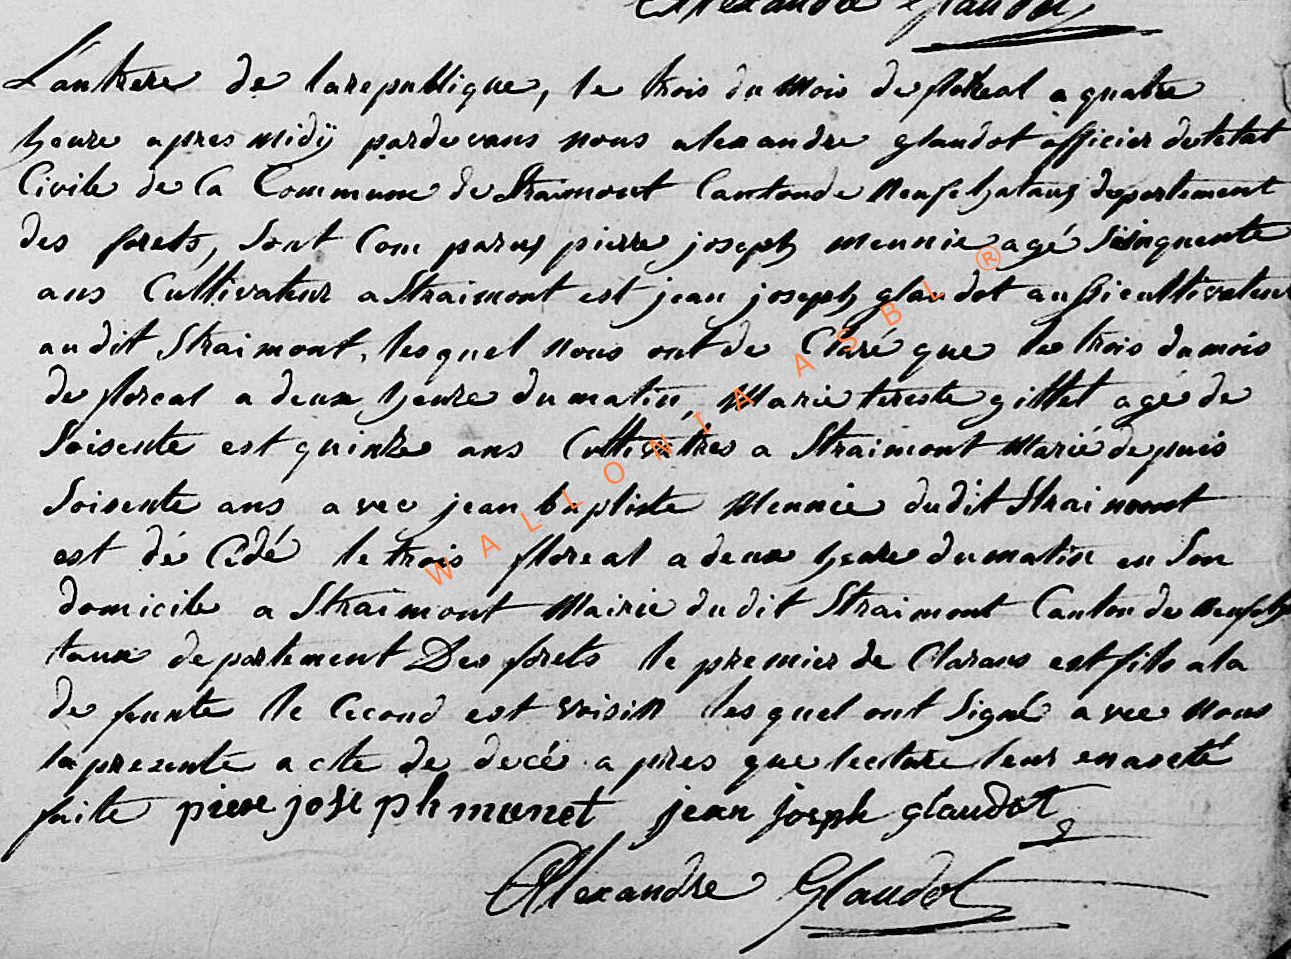 Alexandre Glaudot
L'antrere de larepublique, le trois du mois de floreal a quatre
heure apres midÿ pardevans nous alexandre glaudot officier detetat
Civile de la Commune de Straimont Cantonde neufchataus departement
des forets, sont Com parus pierre joseph mennie agé Sinquente
ans Cultivateur a Straimont est jean joseph glaudot aussi cultivateur
audit Straimont, lesquel nous ont de Claré que le trois du mois
de floreal a deux heure du matin, Marie tereste gillet agé de
Soisente est quinze ans Cultivatres a Straimont Marié depuis
Soisente ans avec jean baptiste Mennie dudit Straimont
est dé Cedé le trois floreal a deux heure du matin en Son
domicile a Straimont Mairie dudit Straimont Canton de neufcha
taux departement Des forets le premier de Clarans est fils a la
de funte le Cecond est voisin lesquel ont Signé avec nous
la presente acte de decé apres que lecture leur en a eté
faite piere joseph menet jean joseph glaudot
Alexandre Glaudot
WALLONIA ASBL ®